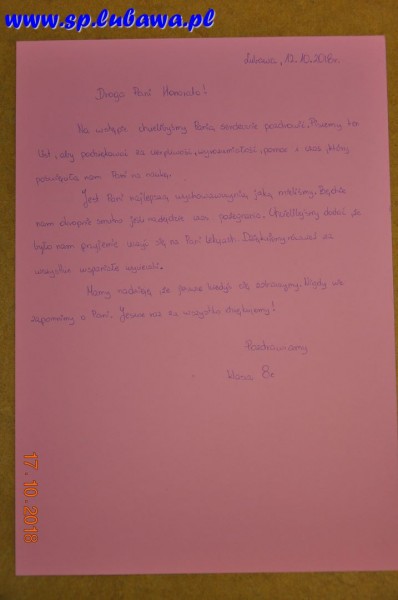 www.sp.lubawa.pl
Lubawa, 12.10.2018r.
Droga Pani Honorato!
Na wstępie chcielibyśmy Panią serdecznie pozdrowić. Piszemy ten
list, aby podziękować za cierpliwość, wyrozumiałość, pomoc i czas, który
poświęciła nam Pani na naukę.
Jest Pani najlepszą wychowawczynią jaką mieliśmy. Będzie
nam okropnie smutno jeśli nadejdzie czas pożegnania. Chcielibyśmy dodać, że
było nam przyjemnie uczyć się na Pani lekcjach. Dziękujemy również za
wszystkie wspaniałe wycieczki.
Mamy nadzieję, że jeszcze kiedyś się zobaczymy. Nigdy nie
zapomnimy o Pani. Jeszcze raz za wszystko dziękujemy!
Pozdrawiamy
klasa 8c
17.10.2018